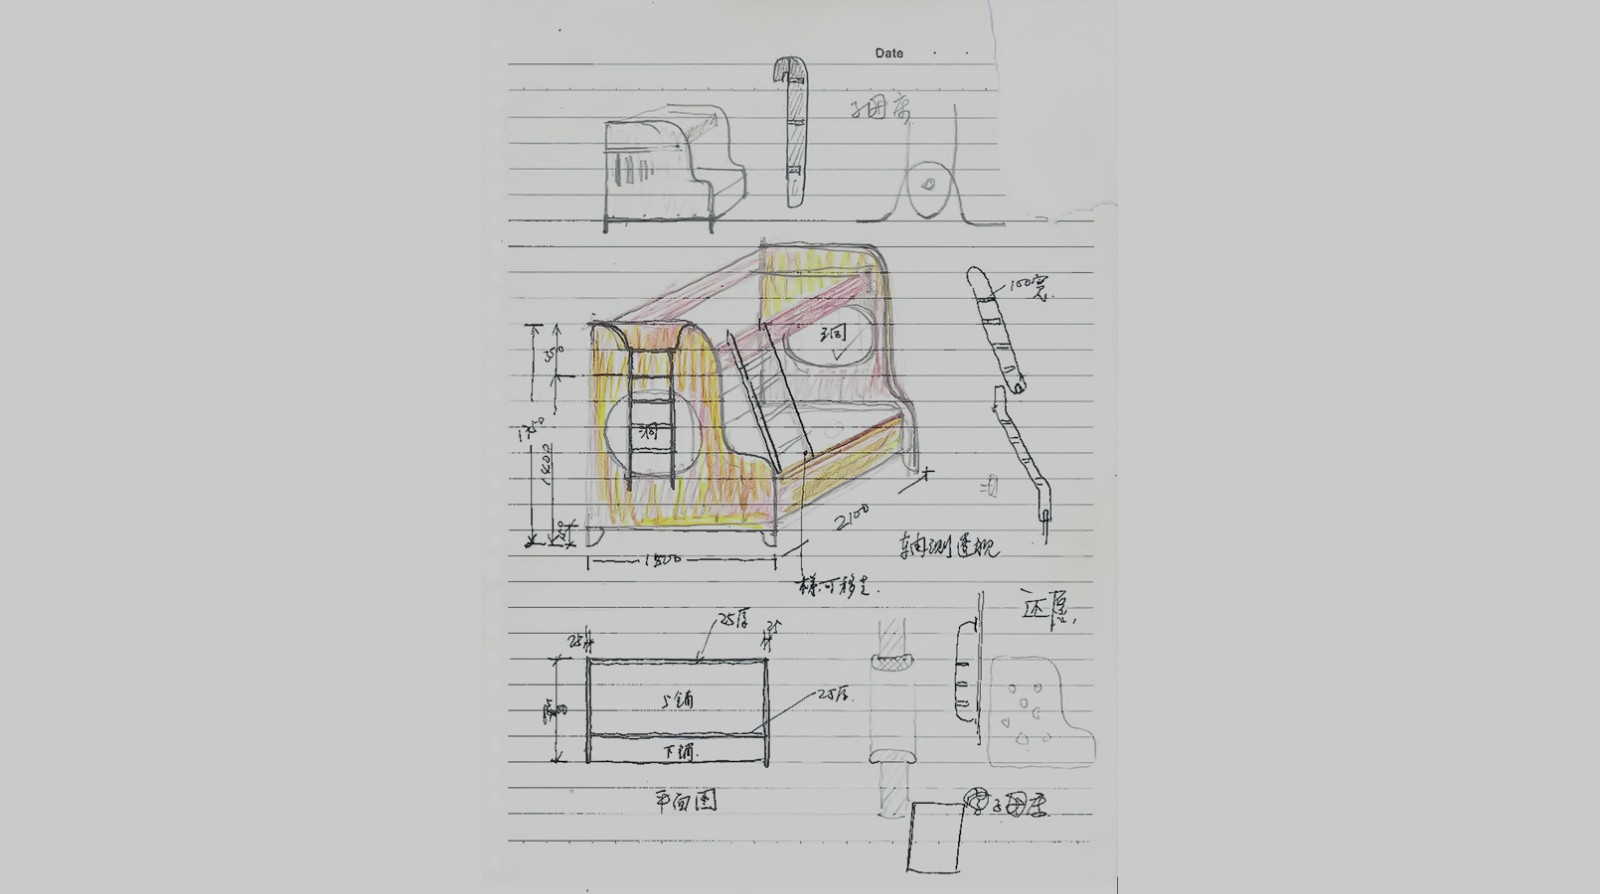 Date
子母床
100宽
洞
洞
350
1750
1400
2100
1500
轴测透视
梯可移走.
还愿,
25厚
25
25
上铺
25厚.
下铺.
平面图
子母床